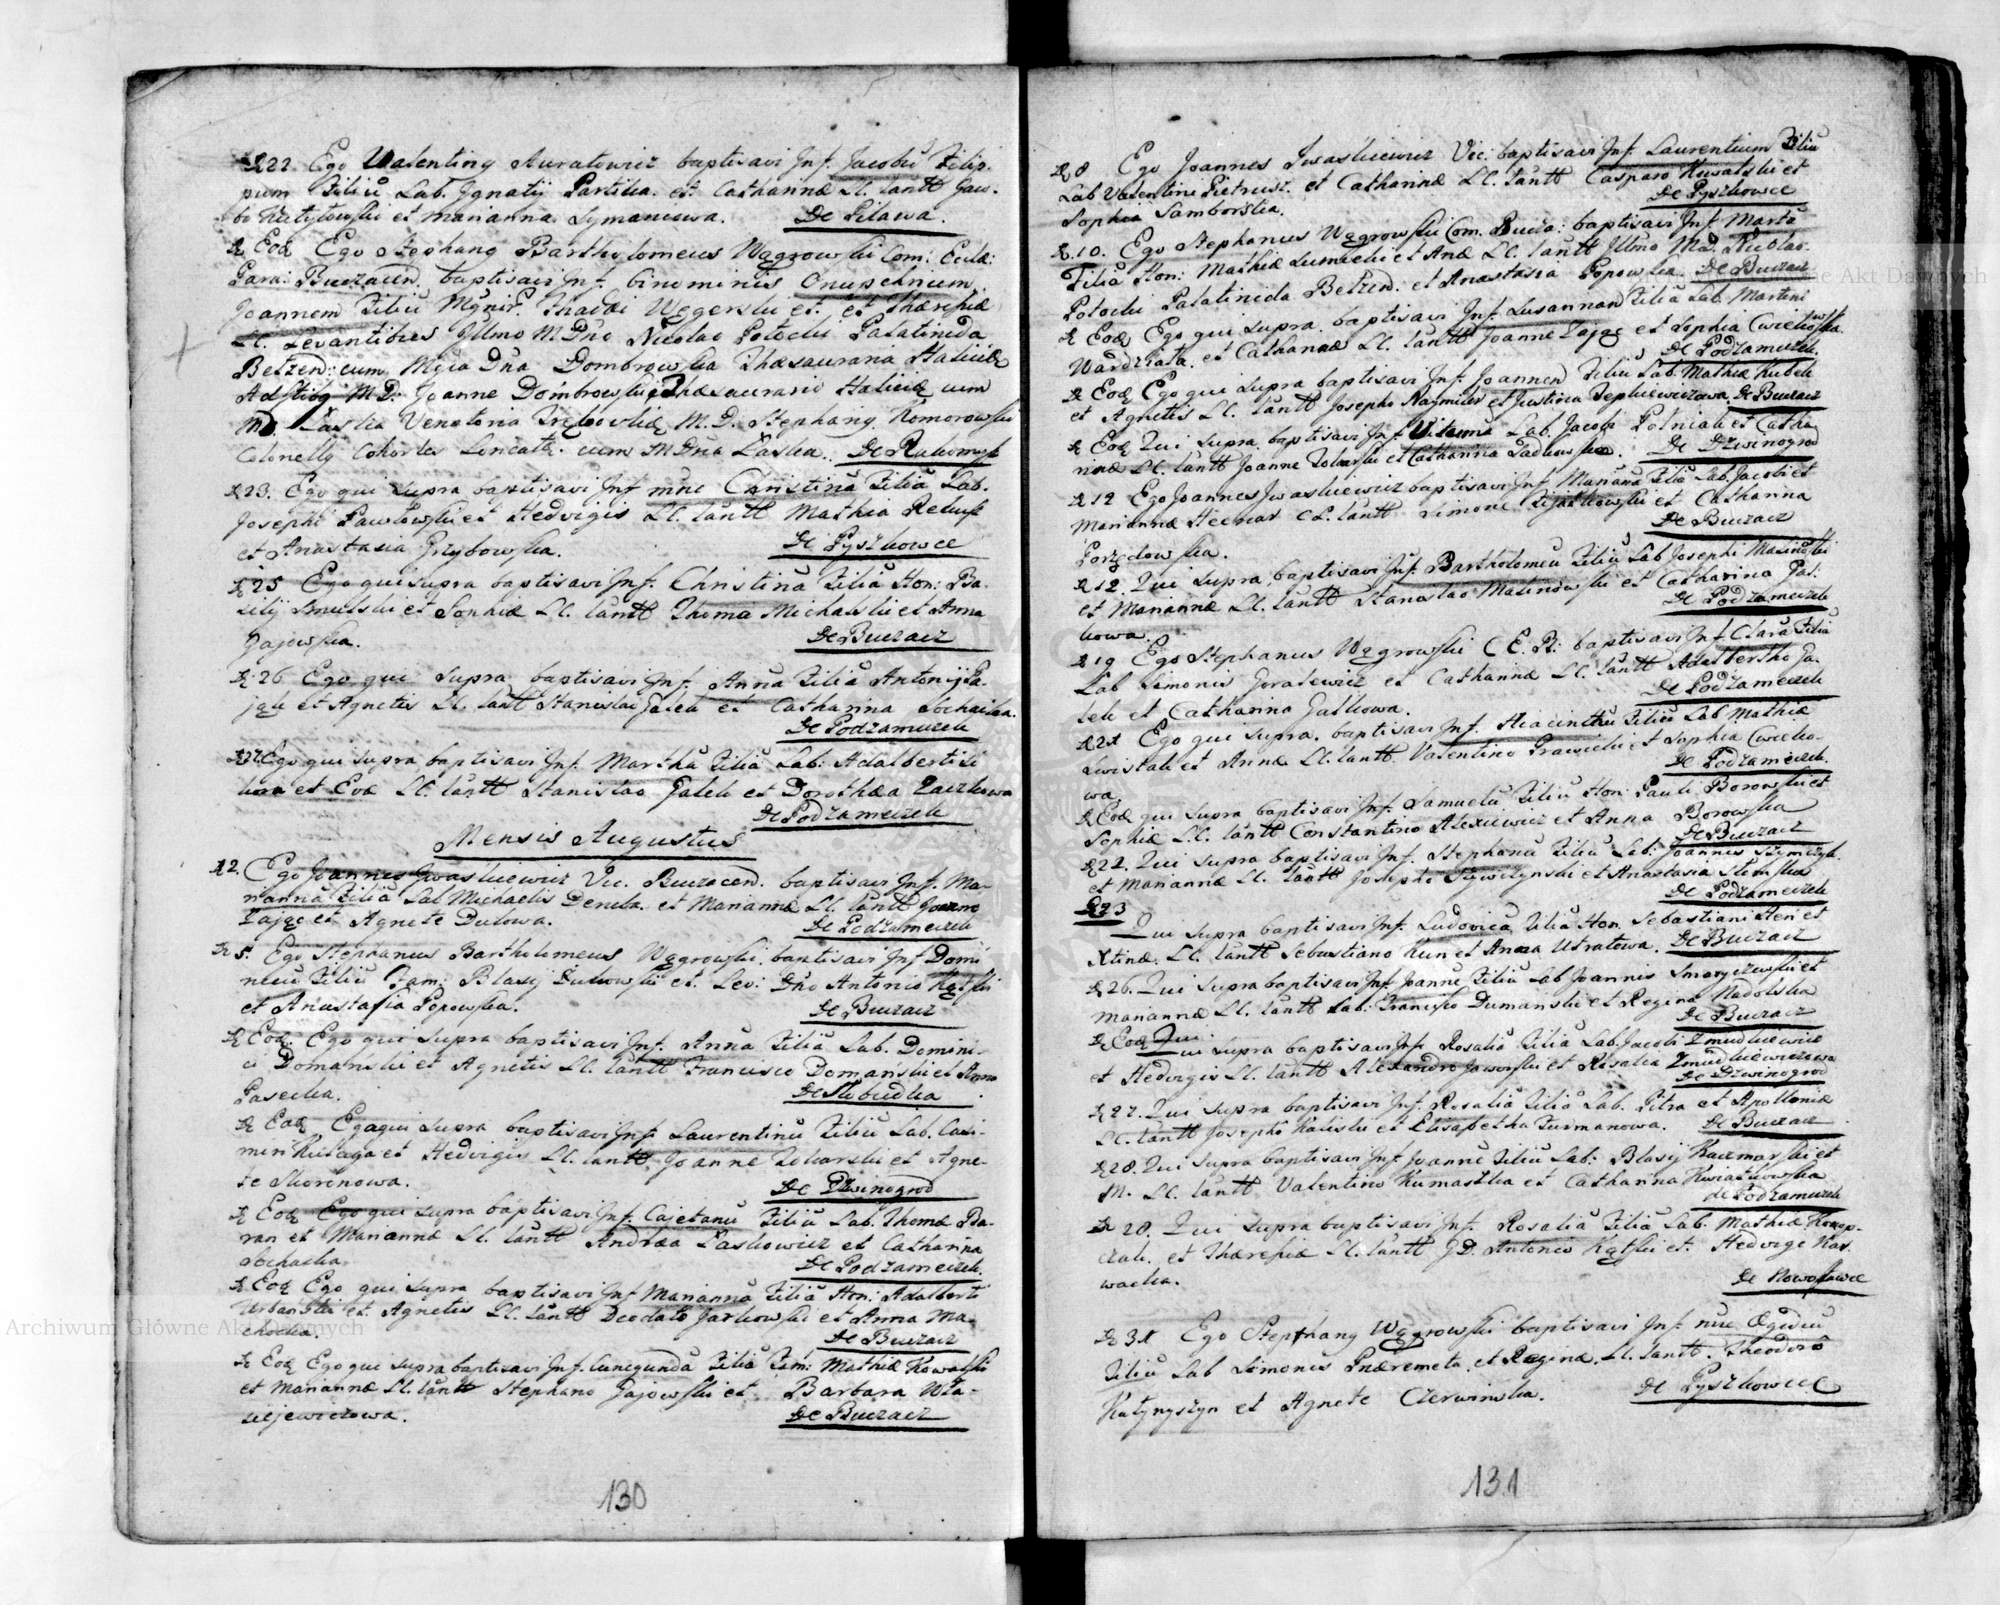 D 22. Ego Valentinq Auratowicz baptisavi Inf. Jacobũ Filip.
pum Filiũ Lab. Ignatij Partika. et Catharinæ LC. Tantt Gaw.
et Marianna Symanowa. De Pilawa.
D Eod Ego Stephanq Bartholomeus Wągrowski Com: Ecclæ:
Para: Buczacen. baptisavi Inf. binominis Onuphrium
Joannem Filiũ Mgnif. Thadæi Węgerski et. et Theresiæ
LC. Levantibus Illmo M Dno Nicolao Potocki Palatinida
Betzen: cum Mgca Dna Dombrowska Thæsauraria Haliciæ
M.D: Joanne Dombrowski Thæsaurario Haliciæ cum
MD. Laska Venatoria Trębowliæ M.D. Stephanq Komorowski
Colonellq Cohortis cum M Dna Laska. De Rukomysz
D 23. Ego qui supra baptisavi Inf nñe Christinã Filiã Lab.
Josephi Pawłowski et Hedvigis LC. Tantt Mathia
et Anastasia Grzybowska. De Pyszkowce
D 25 Ego qui supra baptisavi Inf. Christinã Filiã Hon: Ba-
silij Smulski et Sophiæ LC. Tantt Thoma Michalski et Anna
Gajowska. De Buczacz
D 26 Ego qui supra baptisavi Inf. Annã Filiã Antonij Pa-
jąk et Agnetis LC. Tantt Stanislai Galek et Catharina Sochacka.
De Podzameczek
D 27 Ego qui supra baptisavi Inf. Marthã Filiã Lab: Adalberti Si
kora et Evæ LC. Tantt Stanislao Galek et Dorothæa Zaczkowa
De Podzameczek
Mensis Augustus
D 2. Ego Joannes Iwaskiewicz Vic. Buczacen. baptisavi Inf. Ma-
riannã Filiã Lab Michaelis Deneka et Mariannæ LC. Tantt Joanne
Zając et Agnete Dulowa. De Podzameczek
D 5. Ego Stephanus Bartholomeus Wągrowski baptisavi Inf Domi
nicũ Filiũ Fam: Blasij Dukowski et. Lev: Dno Antonio Kątski
et Anastasia Popowska. De Buczacz
D Eod. Ego qui supra baptisavi Inf. Annã Filiã Lab. Domini-
ci Domański et Agnetis LC. Tantt Francisco Domanski et Anna
Pasecka. De
D Eod Ego qui supra baptisavi Inf. Laurentinũ Filiũ Lab. Casi-
miri et Hedvigis LC. Tantt Joanne Tokarski et Agne-
te Skoronowa. De Dzwinogrod
D Eod Ego qui supra baptisavi Inf. Cajetanũ Filiũ Lab. Thomæ Ba-
ran et Mariannæ LC. Tantt Andræa Laskowicz et Catharina
Sochacka De Podzameczek.
D Eod Ego qui supra baptisavi Inf Mariannã Filiã Hon: Adalberti
Urbanski et Agnetis LC. Tantt Deodato Jarkowski et Anna Ma-
chocka. De Buczacz
D Eod Ego qui supra baptisavi Inf. Cunegundã Filiã Fam: Mathiæ Kowalski
et Mariannæ LC. Tantt Stephano Gajowski et Barbara Wła-
siejewiczowa. De Buczacz
130
D 8 Ego Joannes Iwaskiewicz Vic. baptisavi Inf. Laurentium Filiũ
Lab Valentini Pietrusz. et Catharinæ LC. Tantt Casparo Kowalski et
Sophia Samborska. De Pyszkowce
D. 10. Ego Stephanus Wągrowski Com. Bucza: baptisavi Inf Marthã
Filiã Hon: Mathiæ et Anæ LC. Tantt Illmo Mag. Nicolao.
Potocki Palatinida Betzen: et Anastasia Popowska De Buczacz
D Eod Ego qui supra. baptisavi Inf. Susannam Filiã Lab. Martini
Wardziata. et Catharinæ LC. Tantt Joanne Zając et Sophia Cwiekowska.
De Podzameczek.
D Eod Ego qui supra baptisavi Inf. Joannen Filiũ Lab. Mathiæ Kubek
et Agnetis LC. Tantt Josepho Naymiler et Justina De Buczacz
D Eod Qui supra baptisavi Inf. Lab. Jacobi Polniak et Catha-
rinæ LC. Tantt Joanne Tokarski et Catharina De Dzwinogrod
D 12 Ego Joannes Iwaskiewicz baptisavi Inf Mariãnã Filiã Lab. Jacobi et
Mariannæ CL. Tantt Simone et Catharina
Porzędowska. De Buczacz
D 12. Qui supra baptisavi Inf. Bartholomeũ Filiũ Lab Josephi Malinowski
et Mariannæ LC. Tantt Stanislao Malinowski et Catharina Pal:
kowa. De Podzameczek
D 19 Ego Stephanus Wągrowski C E. B: baptisavi Inf Clarã Filiã
Lab Simonis Goralewicz et Catharinæ LC. Tantt Adalbertho Ga-
lek et Catharina Galkowa. De Podzameczek
D 21 Ego qui supra. baptisavi Inf. Hiacinthũ Filiũ Lab Mathiæ
et Annæ LC. Tantt Valentino Prawicki et Sophia Cwieko-
wa De Podzameczek.
D Eod qui supra baptisavi Inf. Samuelũ Filiũ Hon: Pauli Borowski et
Sophiæ LC. Tantt Constantino Alexiewicz et Anna Borowska
De Buczacz
D 22. Qui supra baptisavi Inf. Stephanũ Filiũ Lab: Joannis Szymczyk.
et Mariannæ LC. Tantt Josepho et Anastasia
De Podzameczek
D 23
Qui supra baptisavi Inf. Ludovicã Filiã Hon. Sebastiani Hen et
Xtinæ. LC. Tantt Sebastiano Kun et Anna Utratowa. De Buczacz
D 26. Qui supra baptisavi Inf Joannẽ Filiũ Lab Joannis et
Mariannæ LC. Tantt Lab: Francisco Dumanski et Regina Nadolska
De Buczacz
D Eod Qui
Qui supra baptisavi Inf. Rosaliã Filiã Lab. Jacobi Zmudkiewicz
et Hedvigis LC. Tantt Alexandro Jaworski et Rosalia Zmudkiewiczowa
De Dzwinogrod
D 27. Qui supra baptisavi Inf. Rosaliã Filiã Lab. Petra et Apolloniæ
LC. Tantt Josepho Kaliski et Elisabetha Furmanowa. De Buczacz
D 28. Qui supra baptisavi Inf Joannẽ Filiũ Lab: Blasij Kaczmarski et
M. LC. Tantt Valentino Kumaszka et Catharina Kwiatkowska
de Podzameczek
D 28. Qui supra baptisavi Inf. Rosaliã Filiã Lab. Mathiæ Konop-
czak. et Theresiæ LC. Tantt GD. Antonio Kątski et. Hedvige Kas
wacka. De Nowostawce
D 31 Ego Stephanq Wągrowski baptisavi Inf nñe Ægidiũ
Filiũ Lab Simonis Pnæremeta et Reginæ LC. Tantt. Theodoro
Katynyszyn et Agnete Czerwinska. De Pyszkowce
131
Archiwum Główne Akt Dawnych